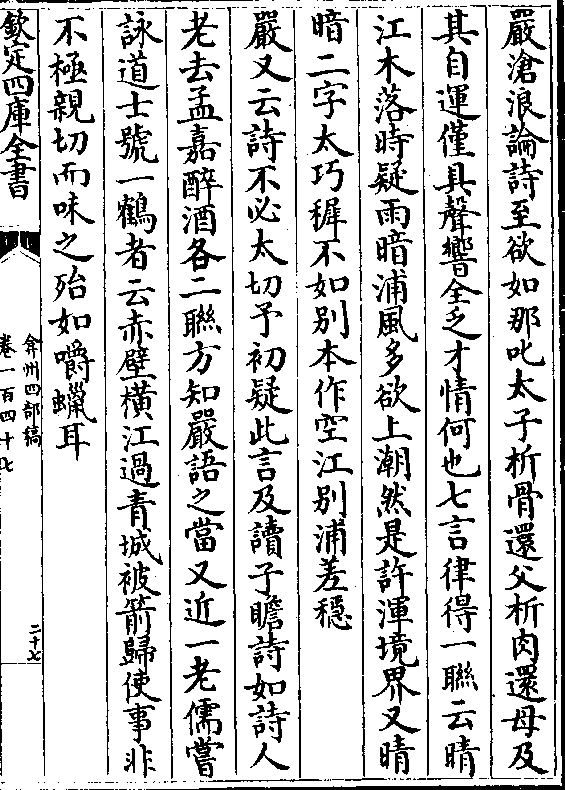 嚴滄浪論詩至欲如那叱太子析骨還父析肉還母及
其自運僅具聲響全乏才情何也七言律得一聯云晴
江木落時疑雨暗浦風多欲上潮然是許渾境界又晴
暗二字太巧穉不如別本作空江別浦差穩
嚴又云詩不必太切予初疑此言及讀子瞻詩如詩人
老去孟嘉醉酒各二聯方知嚴語之當又近一老儒嘗
詠道士號一鶴者云赤壁橫江過青城被箭歸使事非
不極親切而味之殆如嚼蠟耳
欽定四庫全書
弇州四部稿
卷一百四十七
二十七